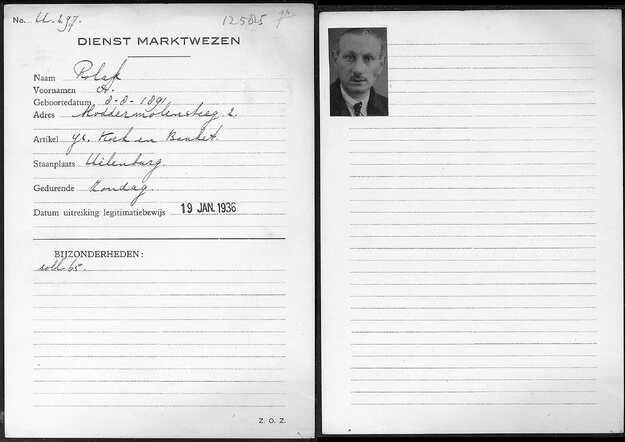 No. U.297. 12585
DIENST MARKTWEZEN
Naam Polak
Voornamen A.
Geboortedatum 8-8-1891
Adres Moddermolensteeg 2.
Artikel Koek en Banket.
Staanplaats Uilenburg.
Gedurende Zondag.
Datum uitreiking legitimatiebewijs 19 JAN. 1936
BIJZONDERHEDEN:
soll. 65.
Z. O. Z.